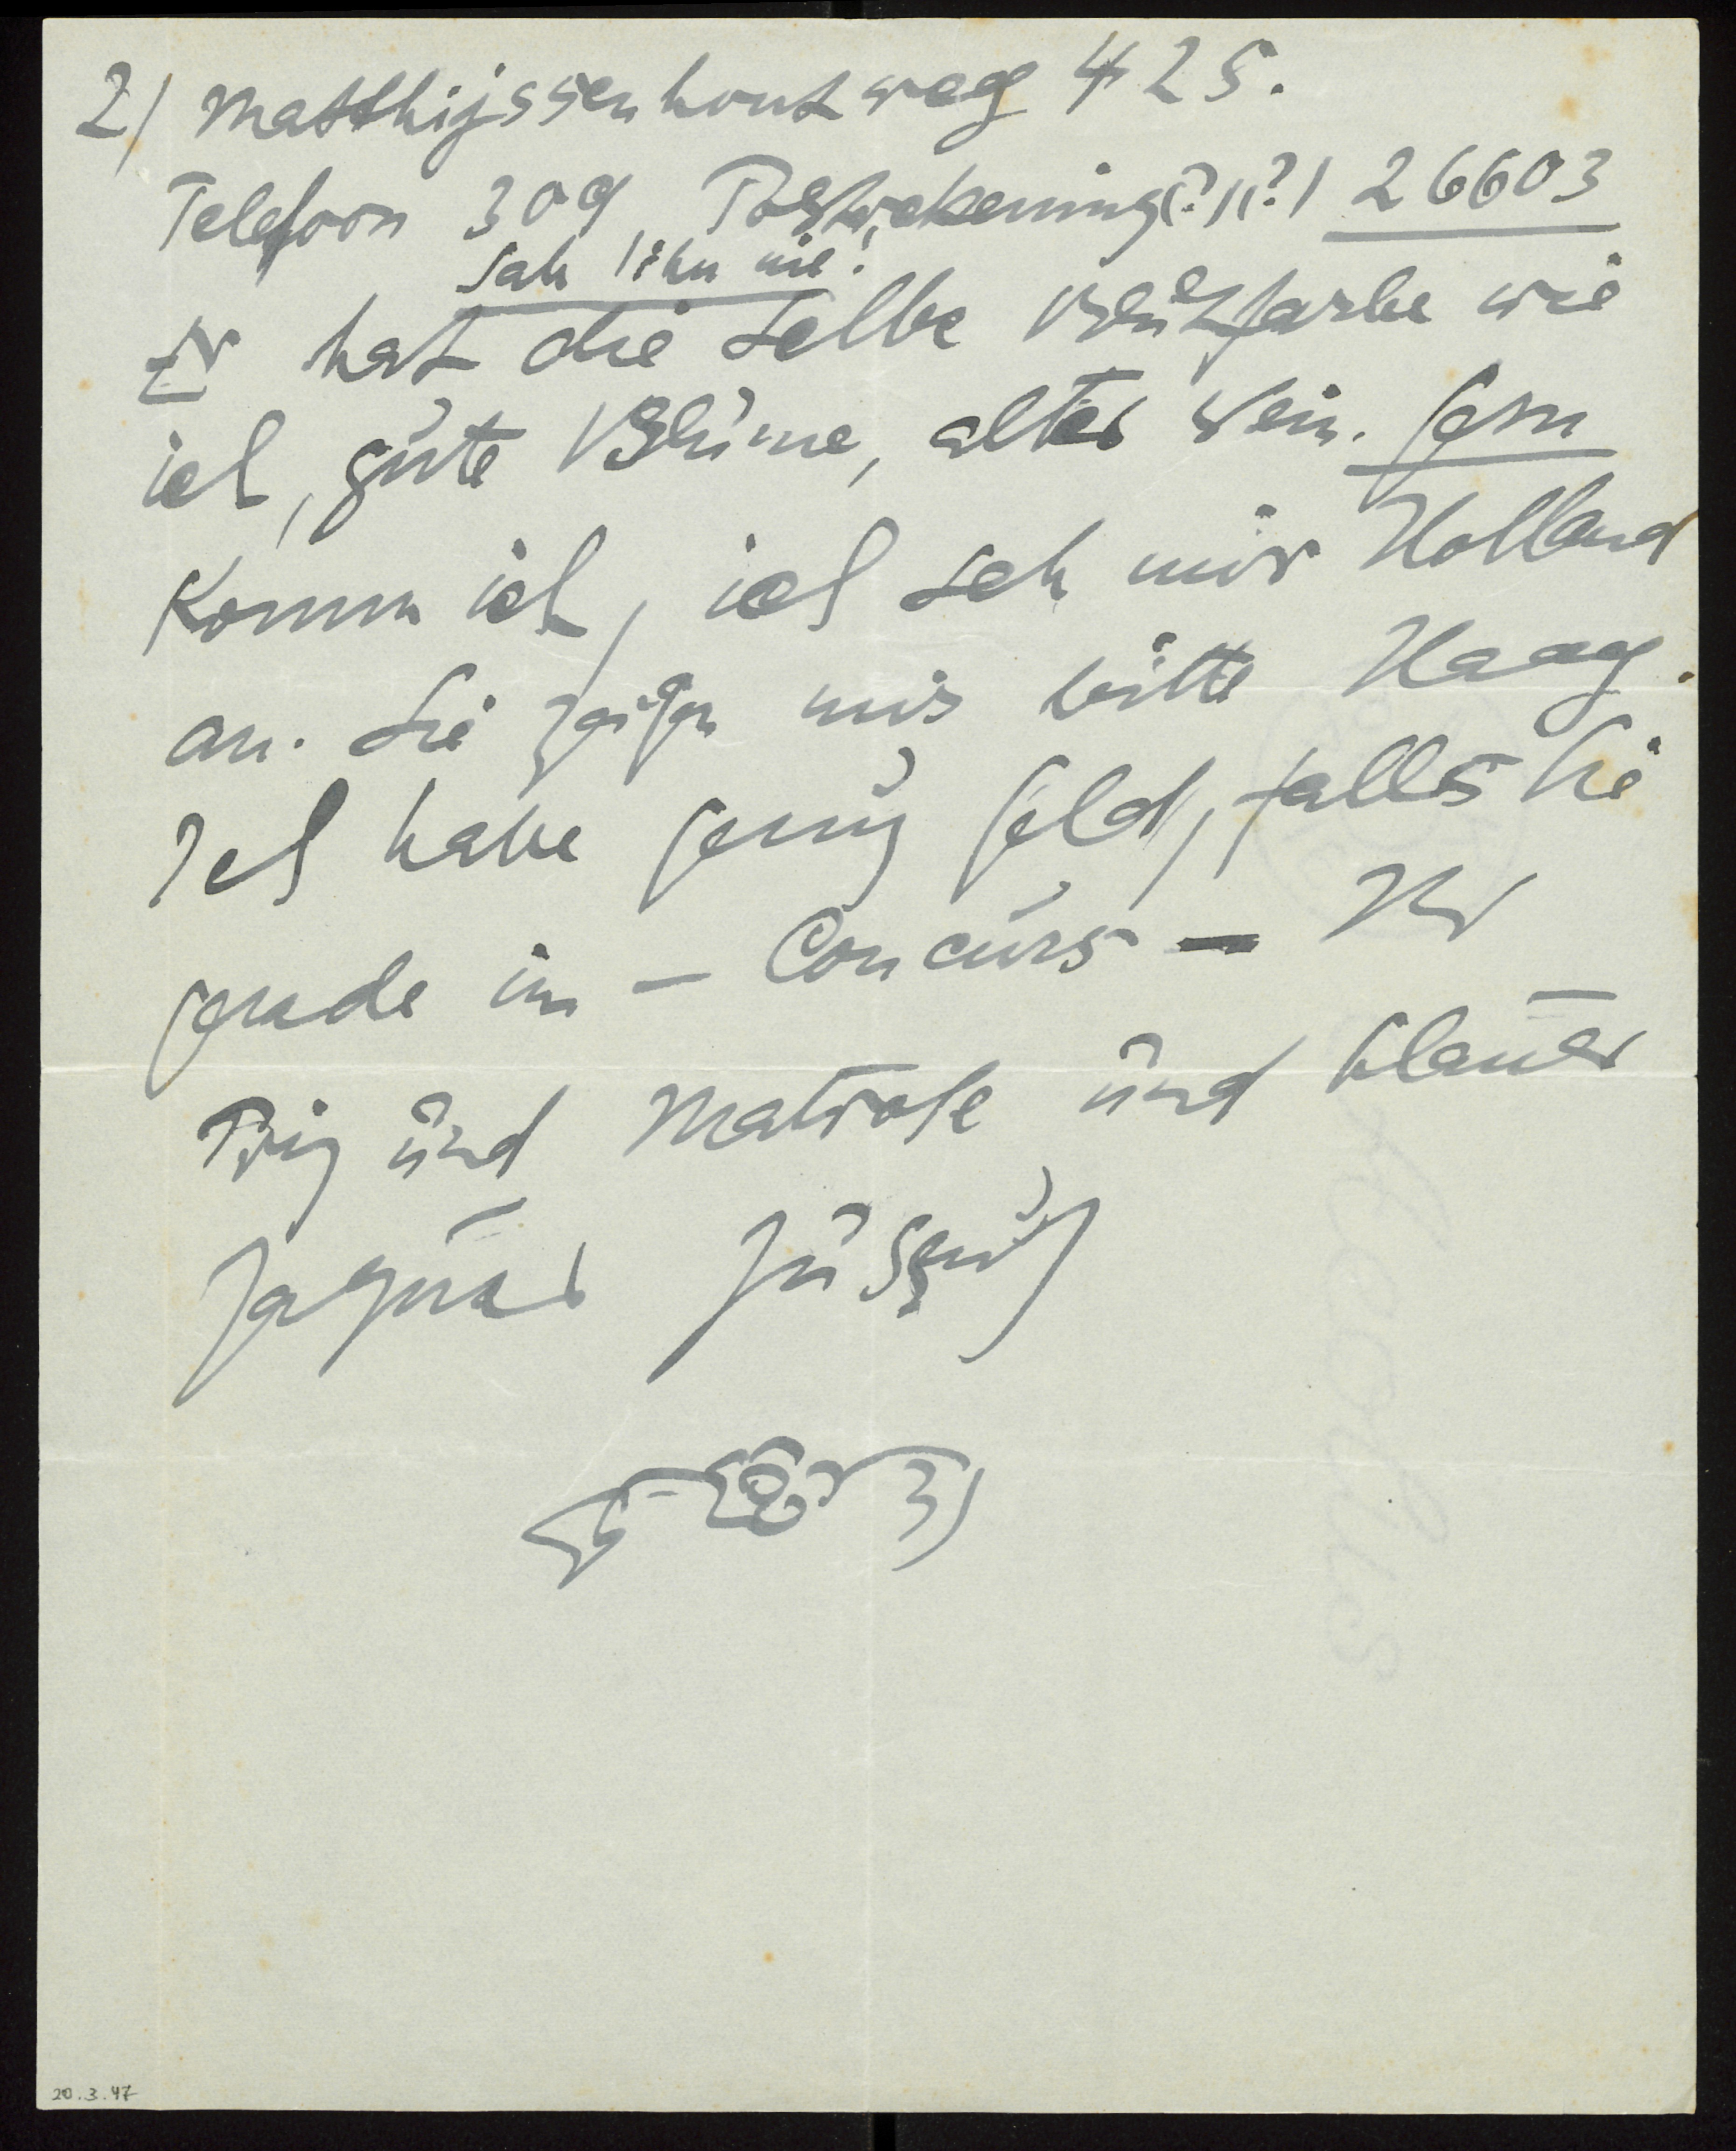 2) Matthijssenhoutweg 425.
Telefoon 309, Postrekening(?)(?) 26603
Sah ihn nie!
Er hat die selbe Blutfarbe wie
ich, gute Blume, alter Wein. Gern
komm ich, ich seh mir Holland
an. Sie zeigen mir bitte Haag.
Ich habe genug Geld, falls Sie
gerade in – Concurs – Ihr
Prinz und Matrose und blauer
Jaguar Jussuf
20.3.47